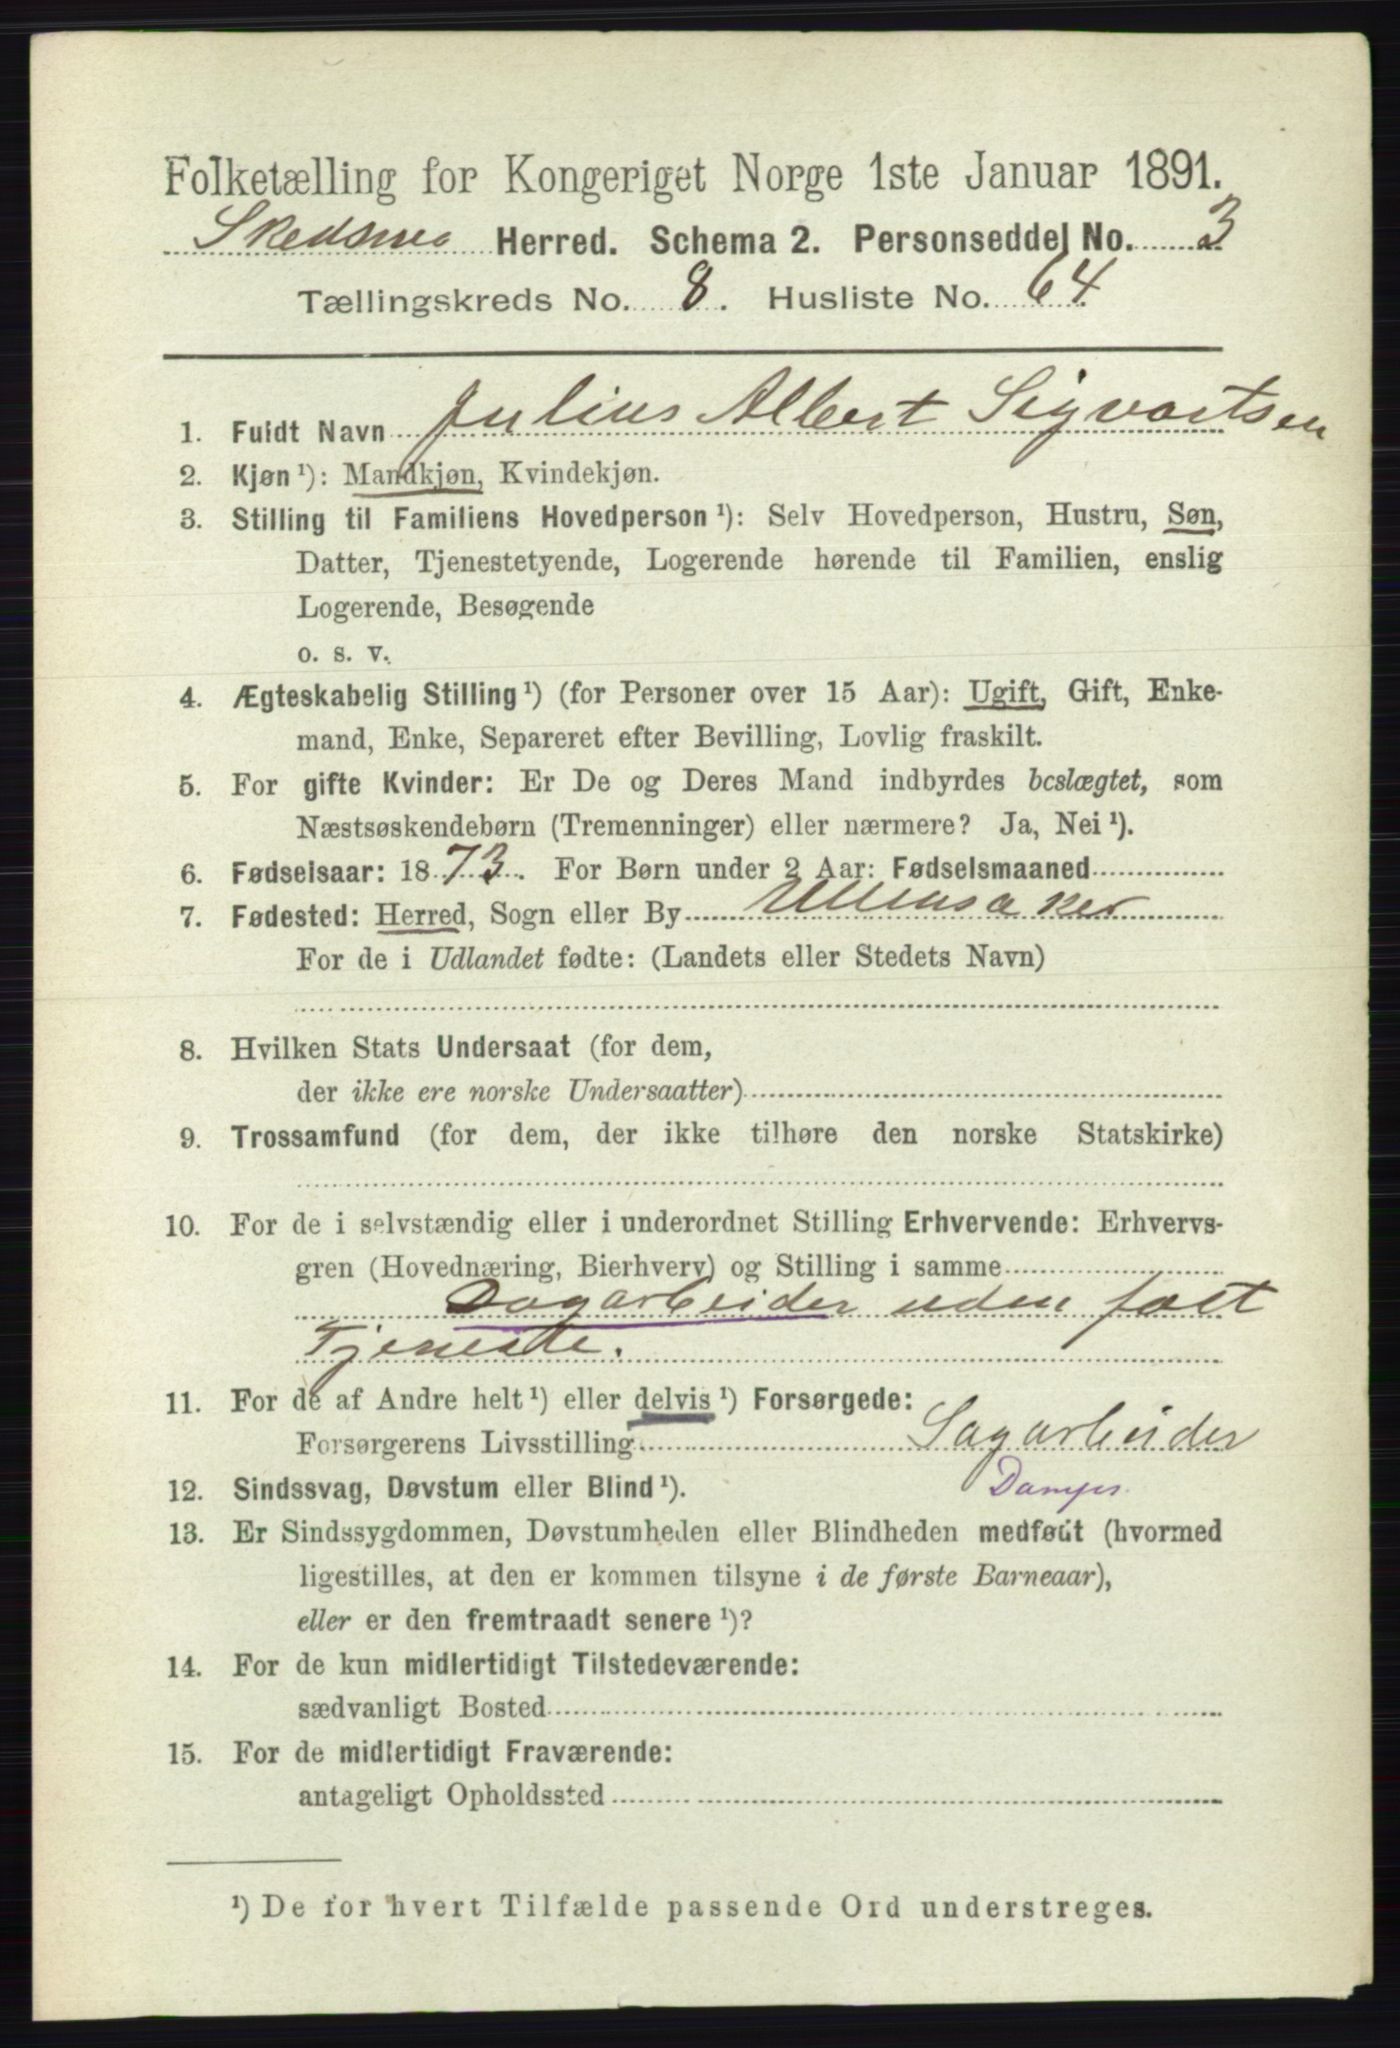 Folketælling for Kongeriget Norge 1ste Januar 1891.
Skedsmo Herred. Schema 2. Personseddel No. 3
Tællingskreds No. 8. Husliste No. 64
1. Fuldt Navn Julius Albert Sigvartsen
2. Kjøn¹): Mandkjøn, Kvindekjøn.
3. Stilling til Familiens Hovedperson¹): Selv Hovedperson, Hustru, Søn,
Datter, Tjenestetyende, Logerende hørende til Familien, enslig
Logerende, Besøgende
o. s. v.
4. Ægteskabelig Stilling¹) (for Personer over 15 Aar): Ugift, Gift, Enke-
mand, Enke, Separeret efter Bevilling, Lovlig fraskilt.
5. For gifte Kvinder: Er De og Deres Mand indbyrdes beslægtet, som
Næstsøskendebørn (Tremenninger) eller nærmere? Ja, Nei¹).
6. Fødselsaar: 1873. For Børn under 2 Aar: Fødselsmaaned
7. Fødested: Herred, Sogn eller By Ullensaker
For de i Udlandet fødte: (Landets eller Stedets Navn)
8. Hvilken Stats Undersaat (for dem,
der ikke ere norske Undersaatter)
9. Trossamfund (for dem, der ikke tilhøre den norske Statskirke)
10. For de i selvstændig eller i underordnet Stilling Erhvervende: Erhvervs-
gren (Hovednæring, Bierhverv) og Stilling i samme
Dagarbeider uden fast
Tjeneste.
11. For de af Andre helt¹) eller delvis¹) Forsørgede:
Forsørgerens Livsstilling Sagarbeider
12. Sindssvag, Døvstum eller Blind¹).
13. Er Sindssygdommen, Døvstumheden eller Blindheden medfødt (hvormed
ligestilles, at den er kommen tilsyne i de første Barneaar),
eller er den fremtraadt senere¹)?
14. For de kun midlertidigt Tilstedeværende:
sædvanligt Bosted
15. For de midlertidigt Fraværende:
antageligt Opholdssted
¹) De for hvert Tilfælde passende Ord understreges.